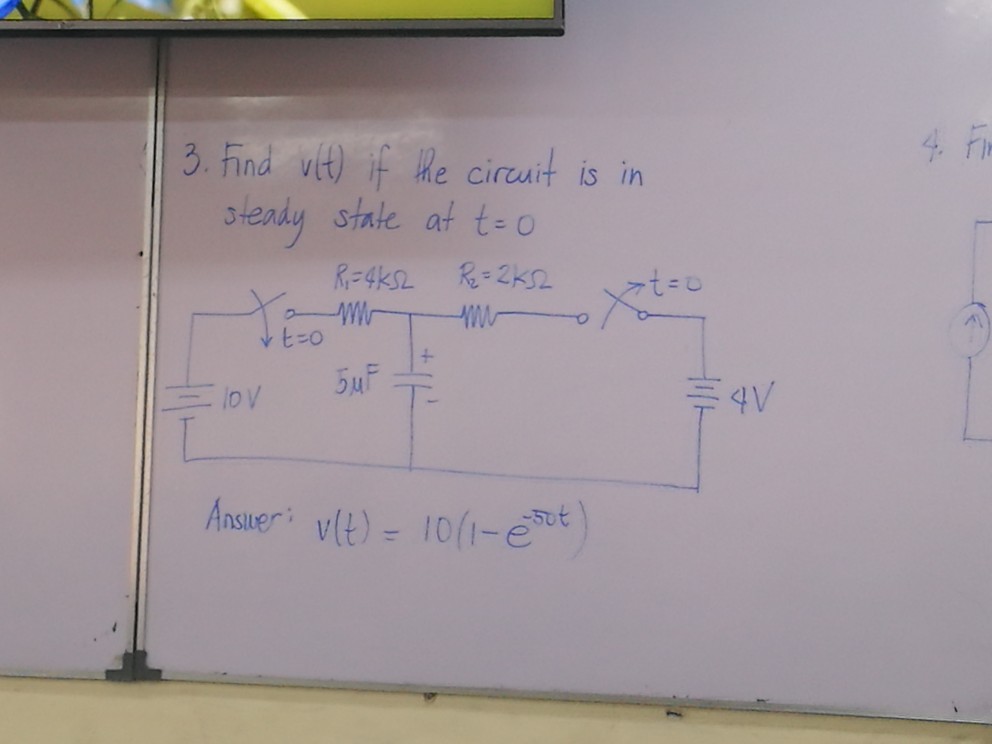 3. Find v(t) if the circuit is in
steady state at t=0
R₁=4kΩ R₂=2kΩ
t=0
t=0
5μF
+
-
10V
4V
Answer: v(t) = 10(1-e^-50t)
4.